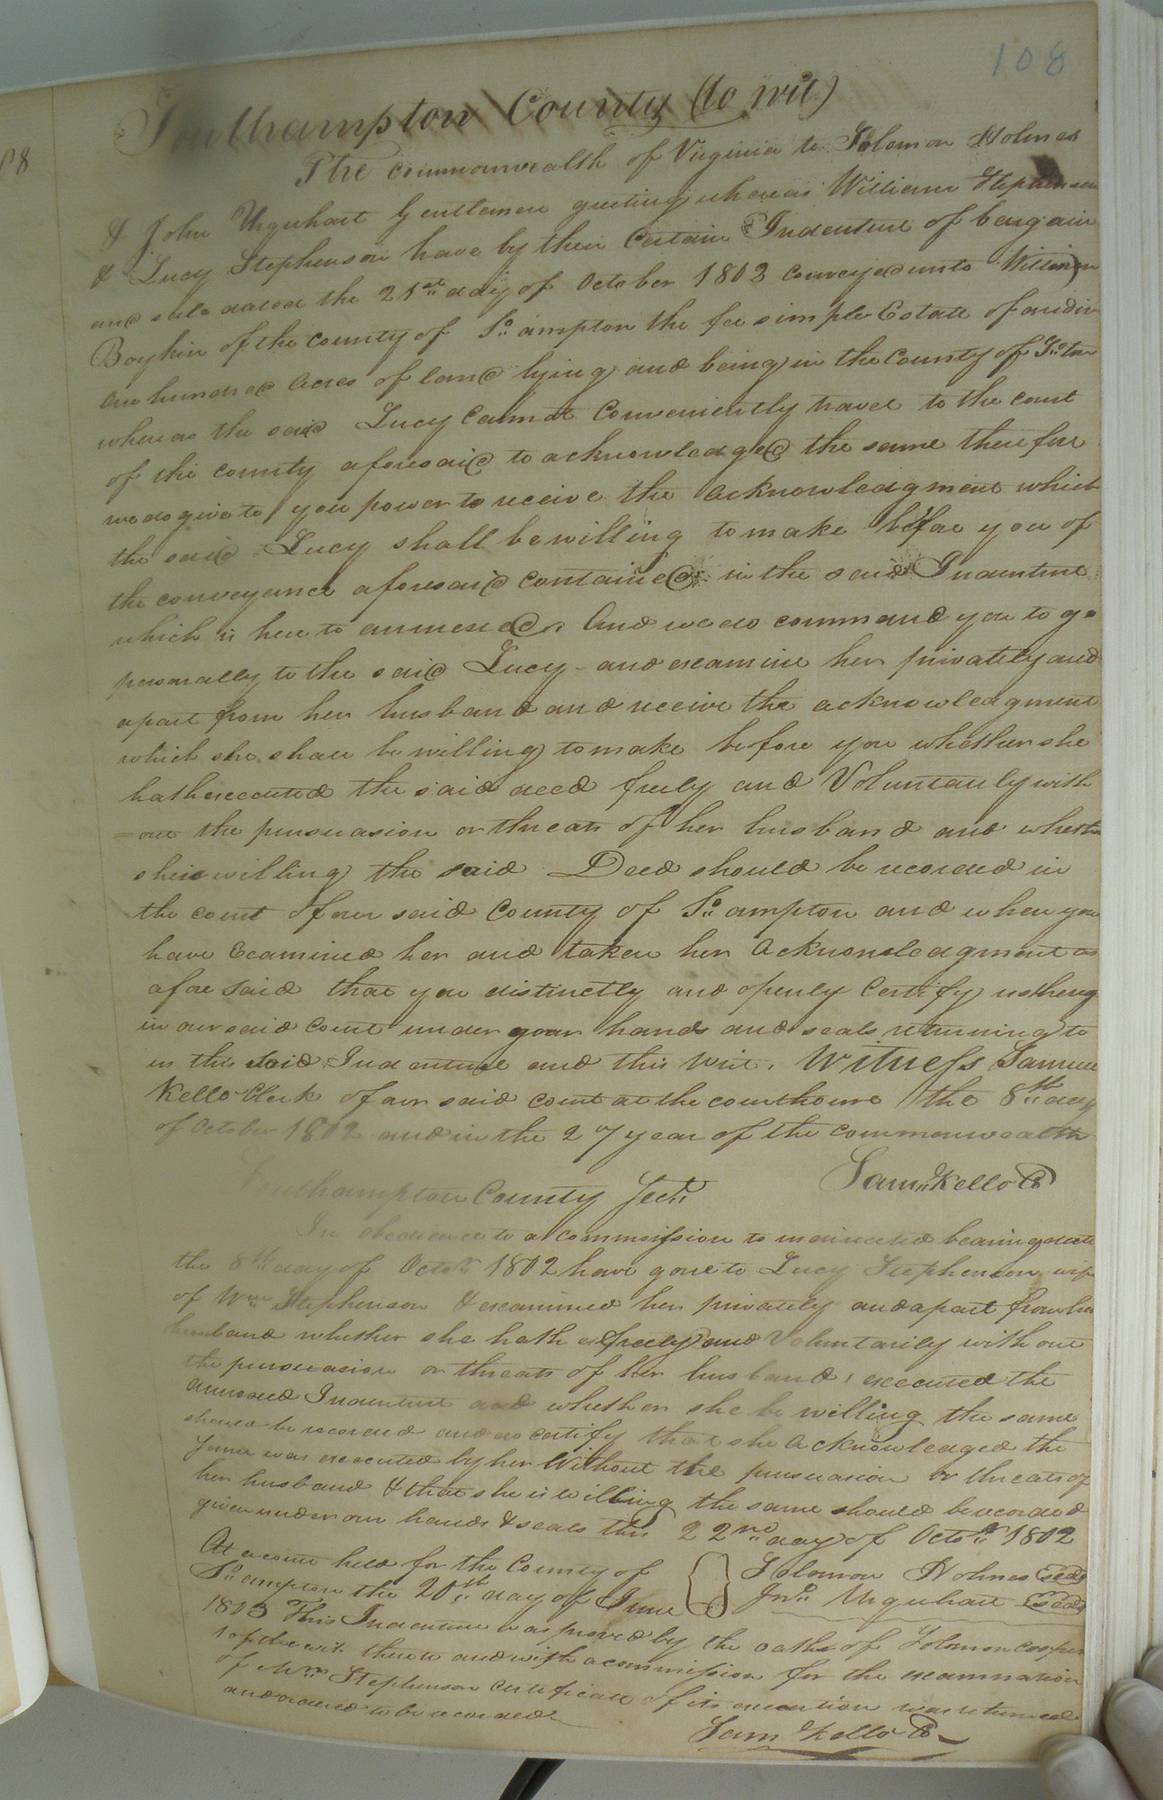 108
Southampton County (to wit)
The commonwealth of Virginia to Solomon Holmes
& John Urquhart Gentlemen greeting whereas William Stephenson
& Lucy Stephenson have by their Certain Indenture of bargain
and sale dated the 21st day of October 1802 conveyed unto William
Boykin of the county of So ampton the fee simple Estate of
one hundred acres of land lying and being in the County of
whereas the said Lucy Cannot Conveniently travel to the court
of the county aforesaid to acknowledged the same therefore
we do give to you power to receive the acknowledgment which
the said Lucy shall be willing to make before you of
the conveyance aforesaid contained in the said Indenture
which is here to annexed And we do command you to go
personally to the said Lucy and examine her privately and
apart from her husband and receive the acknowledgment
which she shall be willing to make before you whether she
hath executed the said deed freely and Voluntarily with
=out the persuasion or threats of her husband and whether
she is willing the said Deed should be recorded in
the court of our said County of So ampton and when you
have Examined her and taken her Acknowledgment as
afore Said that you distinctly and openly Certify us thereof
in our said Court under your hands and seals returning to
us this said Indenture and this Writ. Witness Samuel
Kello Clerk of our said court at the courthouse the 8th day
of October 1802 and in the 27 year of the commonwealth
Saml Kello C
Southampton County Sect
In obedience to a commission to us directed bearing date
the 8th day of Octo 1802 have gone to Lucy Stephenson wife
of Wm Stephenson & examined her privately and apart from her
husband whether she hath freely and Voluntarily without
the persuasion or threats of her husband executed the
annexed Indenture and whether she be willing the same
should be recorded and do certify that she Acknowledged the
same was executed by her Without the persuasion or threats of
her husband & that she is willing the same should be recorded
given under our hands & seals this 22nd day of Octo 1802
At a court held for the County of Solomon Holmes seal
So ampton the 20th day of June Jno Urquhart seal
1803 This Indenture was proved by the oaths of Solomon Cooper
1 of the wit thereto and with a commission for the examination
of Mrs Stephenson Certificate of its execution was returned
and ordered to be recorded
Sam Kello C